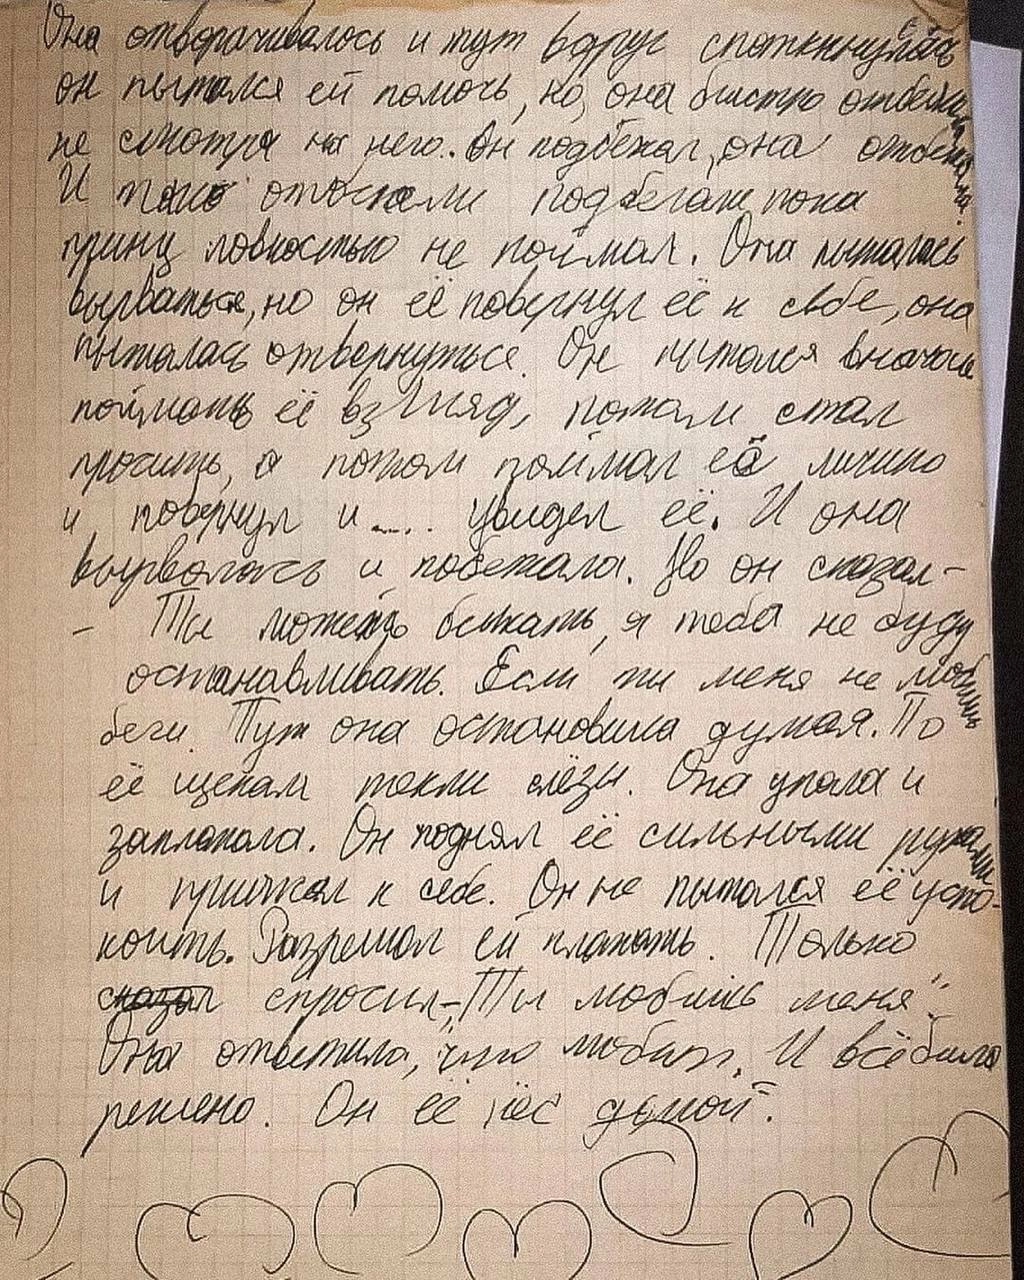 Она отворачивалось и тут вдруг споткнулась
он пытался ей помочь, но, она быстро отбежала
не смотря на него.. Он подбежал, она отбежала.
И тако отбегали подбегали пока
принц ловкостью не поймал. Она пыталась
вырваться, но он её повернул её к себе, она
пыталась отвернуться. Он пытался вначале
поймать её взгляд, потом стал
просить, а потом поймал её личико
и повернул и .... увидел её. И она
вырвалась и побежала. Но он сказал -
- Ты можешь бежать, я тебя не буду
останавливать. Если ты меня не любишь
беги. Тут она остановила думая. По
её щекам текли слёзы. Она упала и
заплакала. Он поднял её сильными руками
и прижал к себе. Он не пытался её успо-
коить. Разрешал ей плакать. Только
сказал спросил - „Ты любишь меня"
Она ответила, что любит. И всё было
решено. Он её домой".